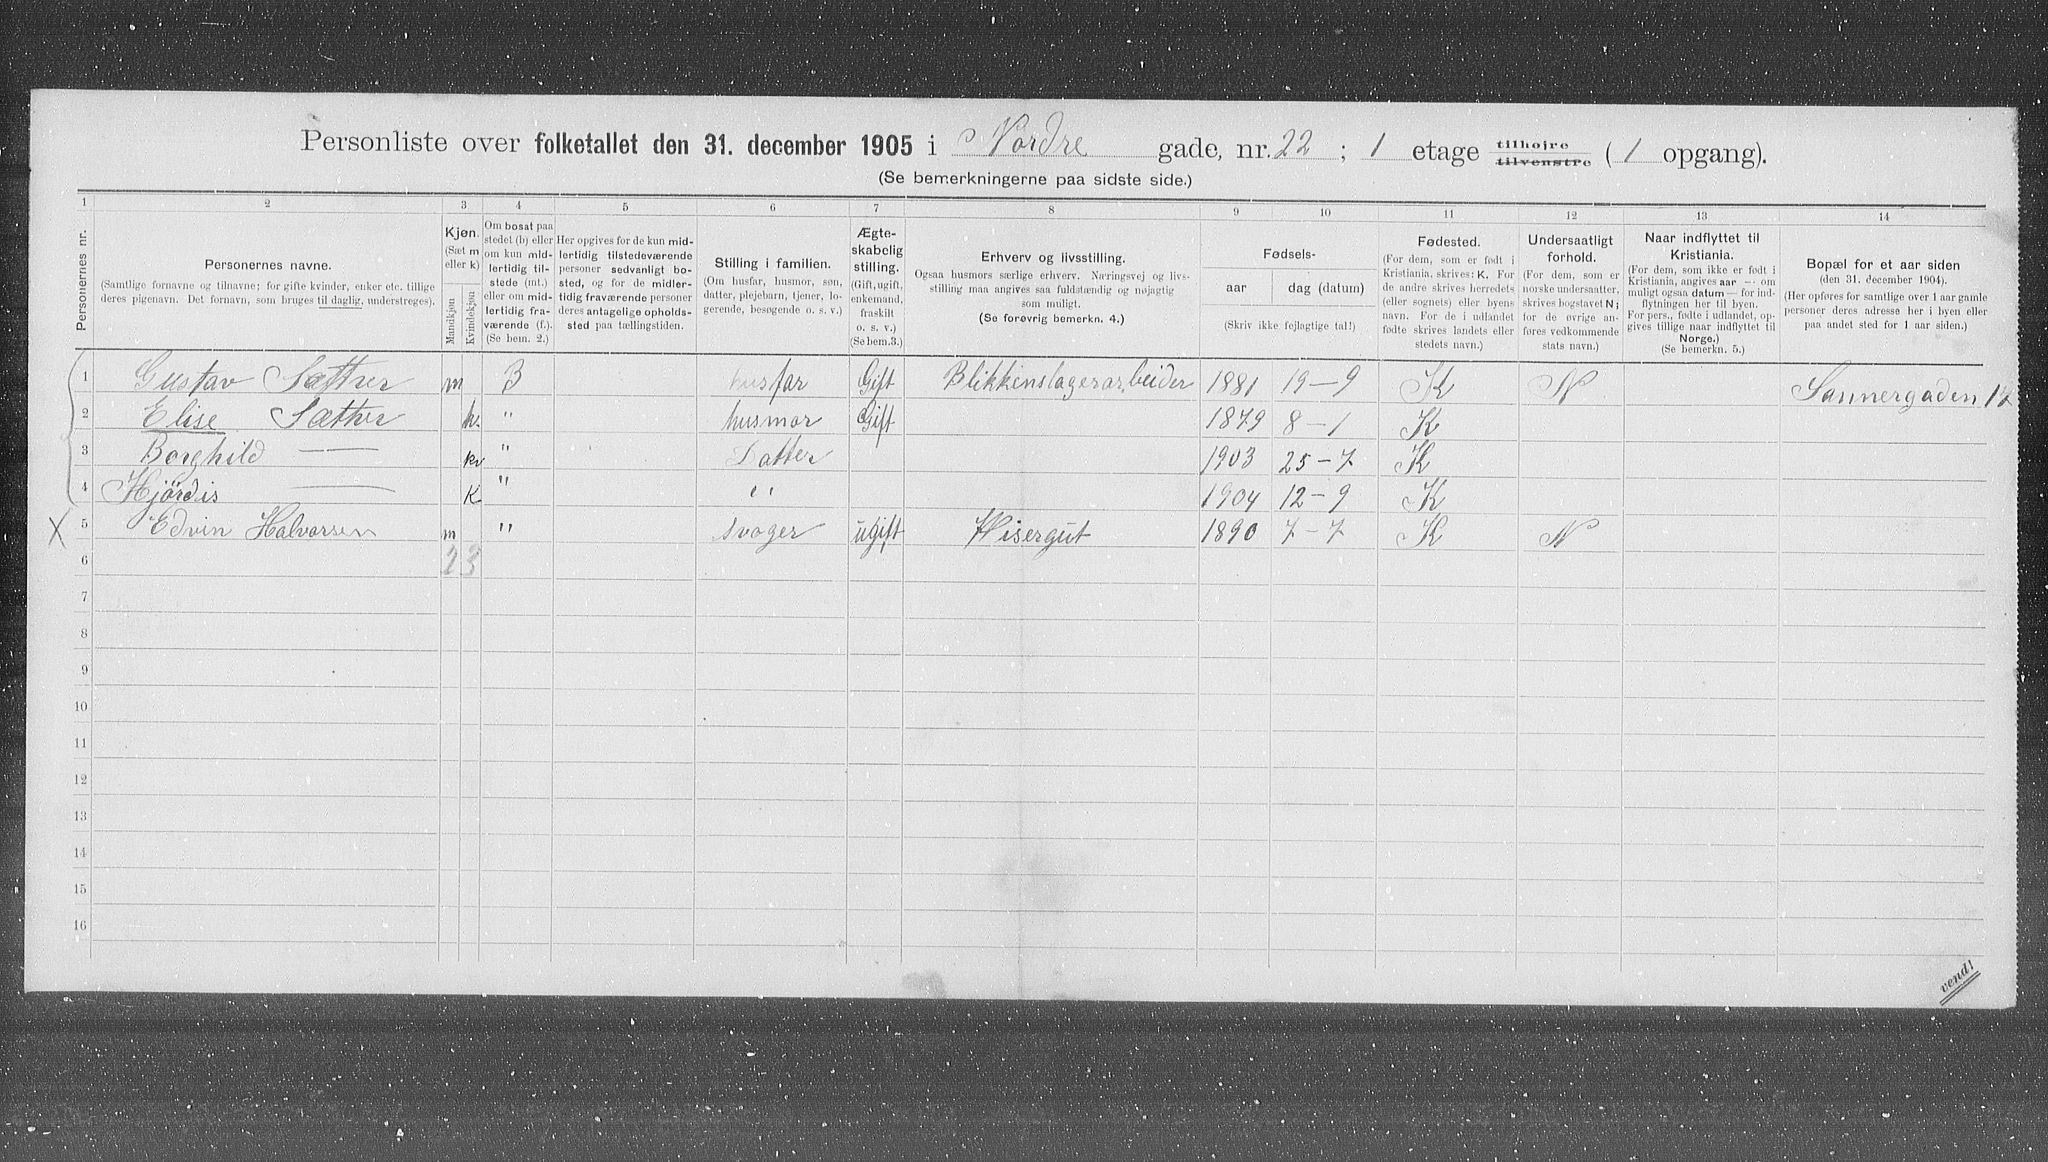 Personliste over folketallet den 31. december 1905 i Nordre gade, nr. 22 ; 1 etage tilhøjre tilvenstre ( 1 opgang).
(Se bemerkningerne paa sidste side.)
1 2 3 4 5 6 7 8 9 10 11 12 13 14
Personernes nr.
Personernes navne.
(Samtlige fornavne og tilnavne; for gifte kvinder, enker etc. tillige
deres pigenavn. Det fornavn, som bruges til daglig, understreges).
Kjøn.
(Sæt m
eller k)
Mandkjøn
Kvindekjøn
Om bosat paa
stedet (b) eller
om kun mid-
lertidig til-
stede (mt.)
eller om mid-
lertidig fra-
værende (f.).
(Se bem. 2.)
Her opgives for de kun mid-
lertidig tilstedeværende
personer sedvanligt bo-
sted, og for de midler-
tidig fraværende personer
deres antagelige opholds-
sted paa tællingstiden.
Stilling i familien.
(Om husfar, husmor, søn,
datter, plejebarn, tjener, lo-
gerende, besøgende o. s. v.)
Ægte-
skabelig
stilling.
(Gift, ugift,
enkemand,
fraskilt
o. s. v.)
(Se bem.3.)
Erhverv og livsstilling.
Ogsaa husmors særlige erhverv. Næringsvej og livs-
stilling maa angives saa fuldstændig og nøjagtig
som muligt.
(Se forøvrig bemerkn. 4.)
Fødsels-
aar dag (datum)
(Skriv ikke fejlagtige tal!)
Fødested.
(For dem, som er født i
Kristiania, skrives: K. For
de andre skrives herredets
(eller sognets) eller byens
navn. For de i udlandet
fødte skrives landets eller
stedets navn.)
Undersaatligt
forhold.
(For dem, som er
norske undersaatter,
skrives bogstavet N;
for de øvrige an-
føres vedkommende
stats navn.)
Naar indflyttet til
Kristiania.
(For dem, som ikke er født i
Kristiania, angives aar — om
muligt ogsaa datum — for ind-
flytningen her til byen.
For pers., fødte i udlandet, op-
gives tillige naar indflyttet til
Norge.)
(Se bemerkn. 5.)
Bopæl for et aar siden
(den 31. december 1904).
(Her opføres for samtlige over 1 aar gamle
personer deres adresse her i byen eller
paa andet sted for 1 aar siden.)
1 Gustav Sæther m B husfar Gift Blikkenslagerarbeider 1881 19-9 K N Sannergaden 12
2 Elise Sæther k. " husmor Gift 1879 8-1 K
3 Borghild — kv " Datter 1903 25-7 K
4 Hjördis — K " " 1904 12-9 K
X 5 Edvin Halvorsen m " svoger ugift Visergut 1890 7-7 K N
6 2 3
7
8
9
10
11
12
13
14
15
16
vend!